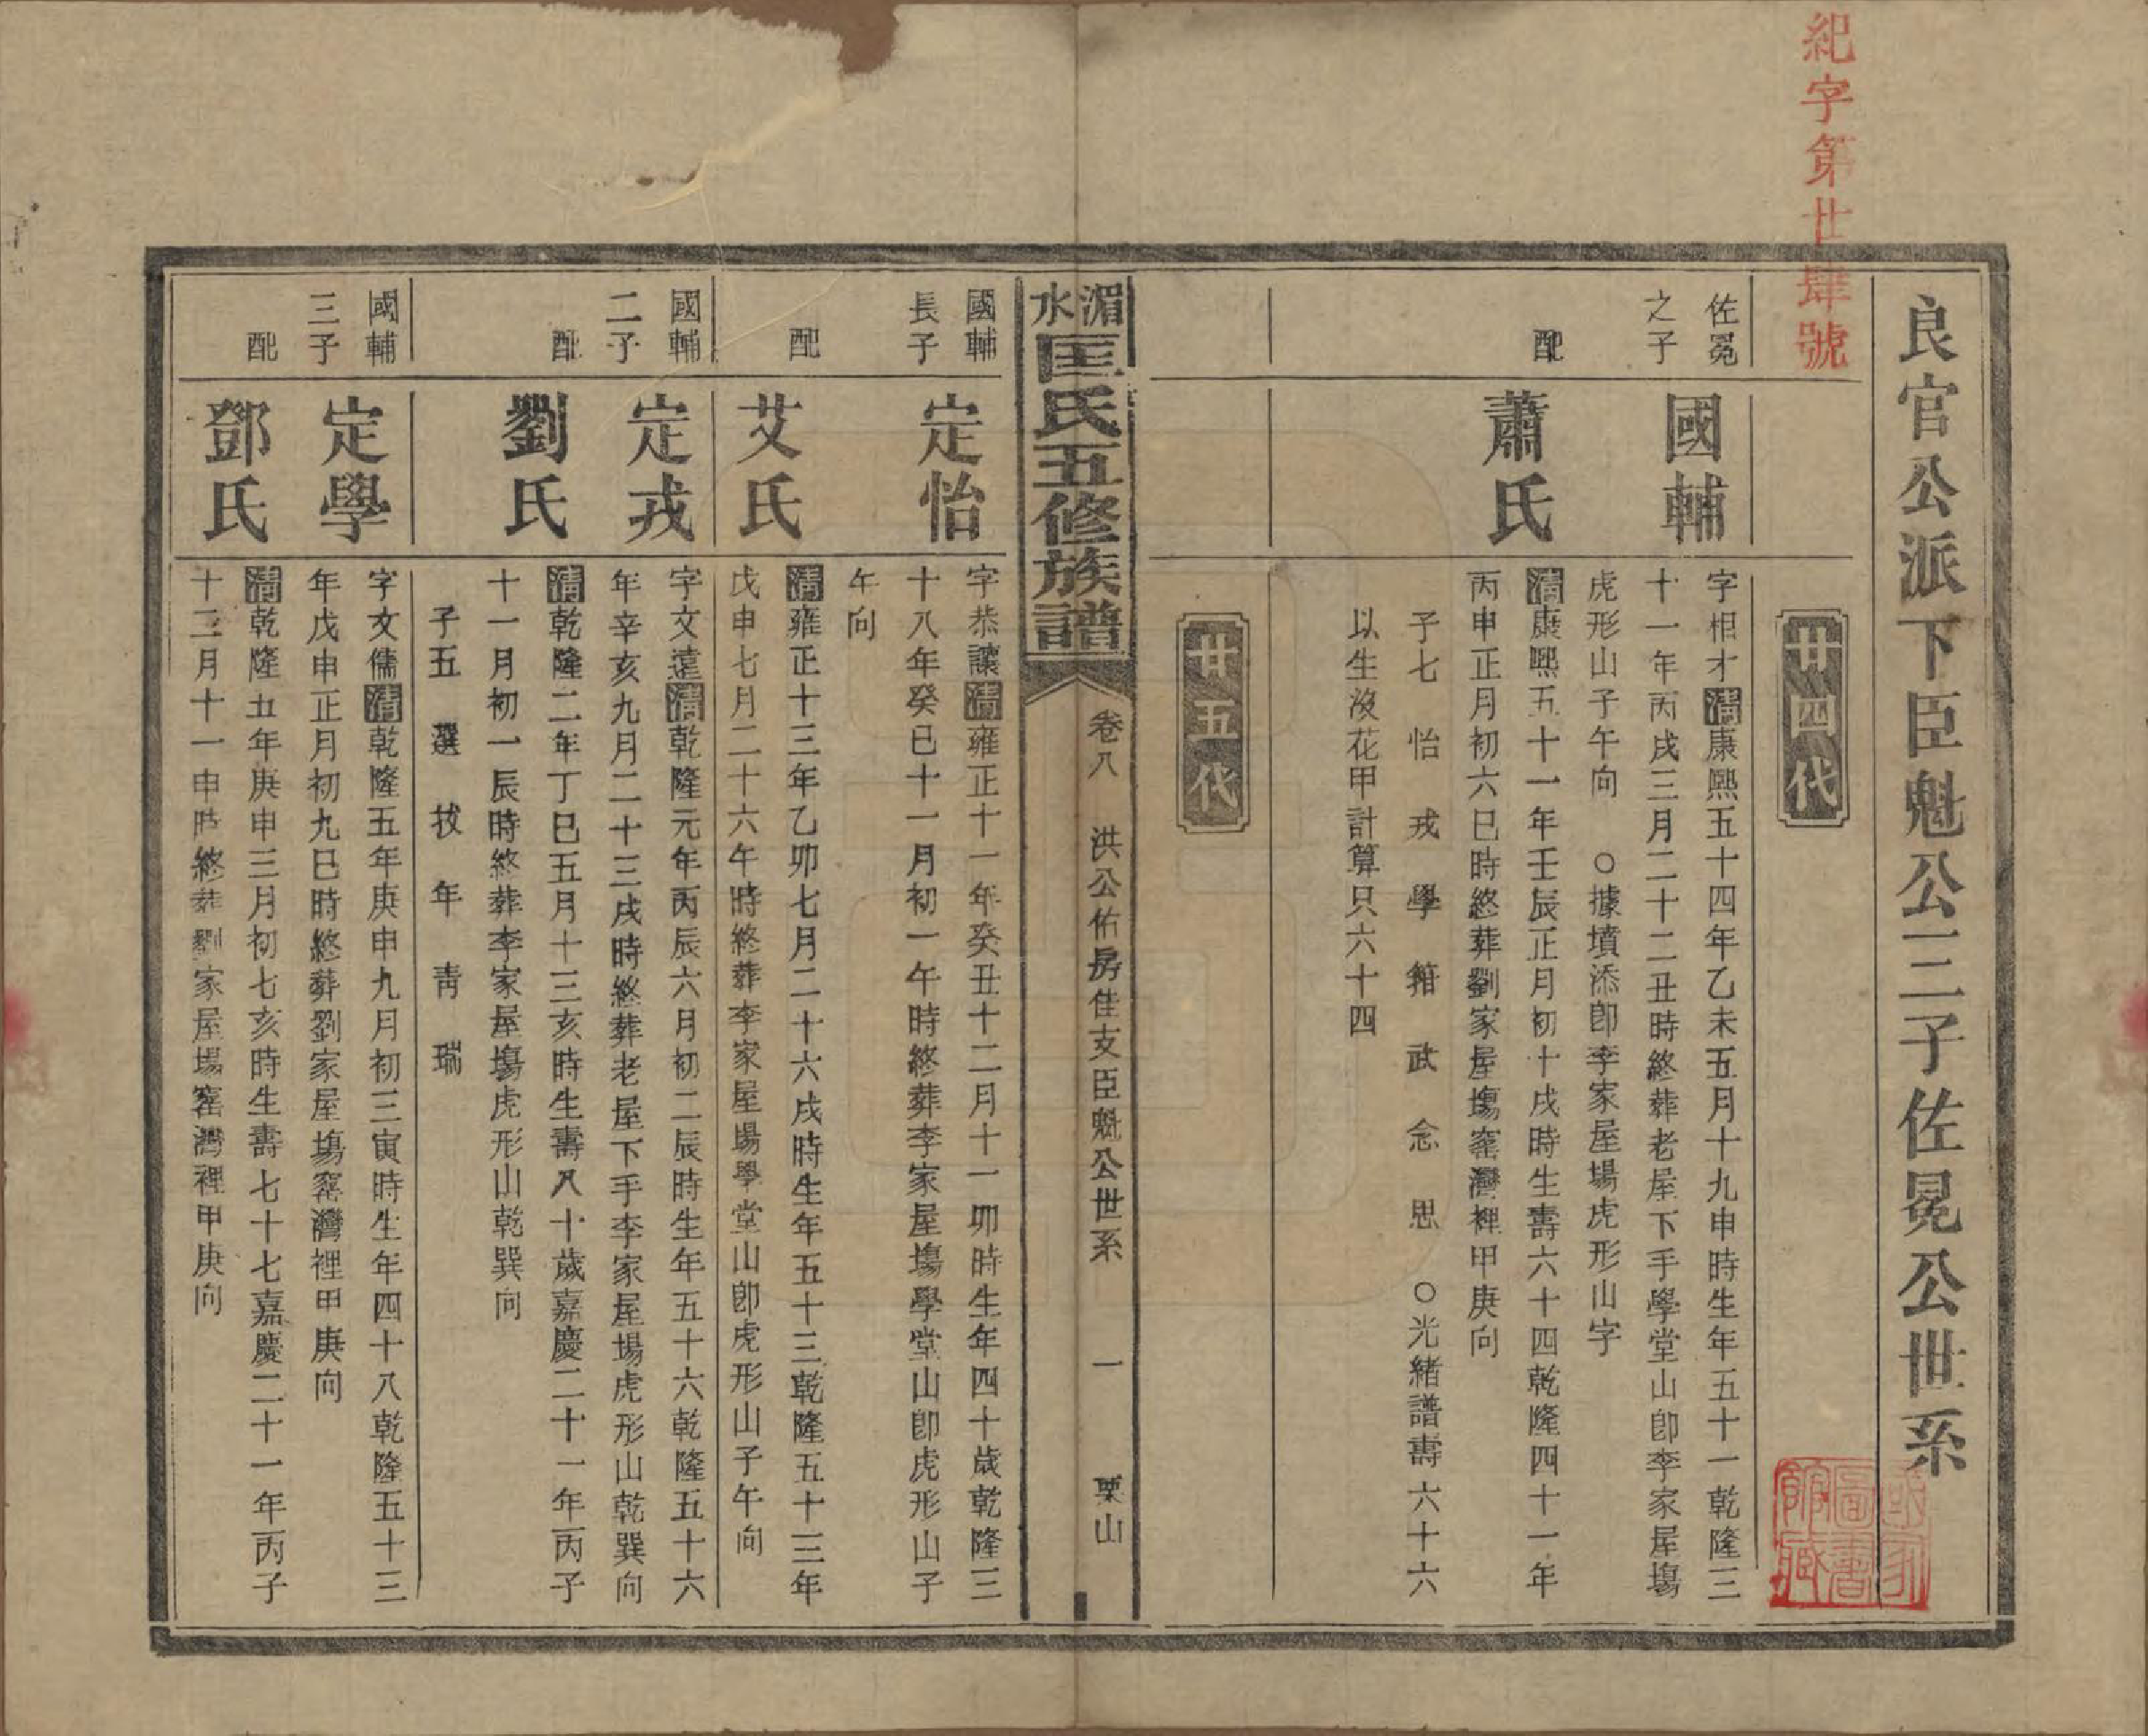 紀字第廿肆號
良官公派下臣魁公三子佐冕公世系
廿四代
佐冕
之子
國輔
字相才清康熙五十四年乙未五月十九申時生年五十一乾隆三
十一年丙戌三月二十二丑時終葬老屋下手學堂山卽李家屋塲
虎形山子午向 ○據墳添卽李家屋塲虎形山字
配
蕭氏
清康熙五十一年壬辰正月初十戌時生壽六十四乾隆四十一年
丙申正月初六巳時終葬劉家屋塲窰灣裡甲庚向
子七 怡 戎 學 籍 武 念 思 ○光緒譜壽六十六
以生歿花甲計算只六十四
廿五代
湄水
匡氏五修族譜
卷八
洪公佑房佳支臣魁公世系
一
栗山
國輔
長子
定怡
字恭讓清雍正十一年癸丑十二月十一卯時生年四十歲乾隆三
十八年癸巳十一月初一午時終葬李家屋塲學堂山卽虎形山子
午向
配
艾氏
清雍正十三年乙卯七月二十六戌時生年五十三乾隆五十三年
戊申七月二十六午時終葬李家屋塲學堂山卽虎形山子午向
國輔
二子
定戎
字文遠清乾隆元年丙辰六月初二辰時生年五十六乾隆五十六
年辛亥九月二十三戌時終葬老屋下手李家屋場虎形山乾巽向
配
劉氏
清乾隆二年丁巳五月十三亥時生壽八十歲嘉慶二十一年丙子
十一月初一辰時終葬李家屋塲虎形山乾巽向
子五 選 拔 年 靑 瑞
國輔
三子
定學
字文儒清乾隆五年庚申九月初三寅時生年四十八乾隆五十三
年戊申正月初九巳時終葬劉家屋塲窰灣裡甲庚向
配
鄧氏
清乾隆五年庚申三月初七亥時生壽七十七嘉慶二十一年丙子
十二月十一申時終葬劉家屋塲窰灣裡甲庚向
國家圖書館藏